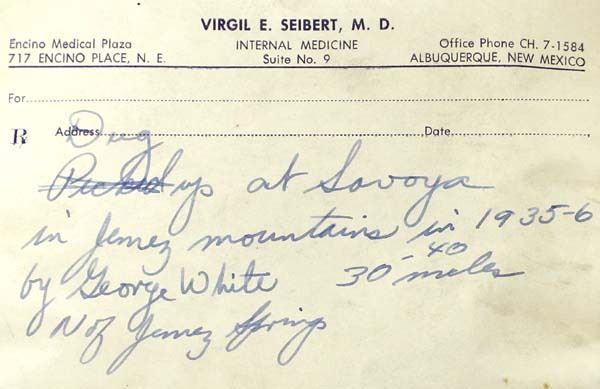 VIRGIL E. SEIBERT, M. D.
Encino Medical Plaza INTERNAL MEDICINE Office Phone CH. 7-1584
717 ENCINO PLACE, N. E. Suite No. 9 ALBUQUERQUE, NEW MEXICO
For
℞ Address Date
Dug
up at Sovoya
in Jemez mountains in 1935-6
by George White 30-40 miles
N of Jemez Springs